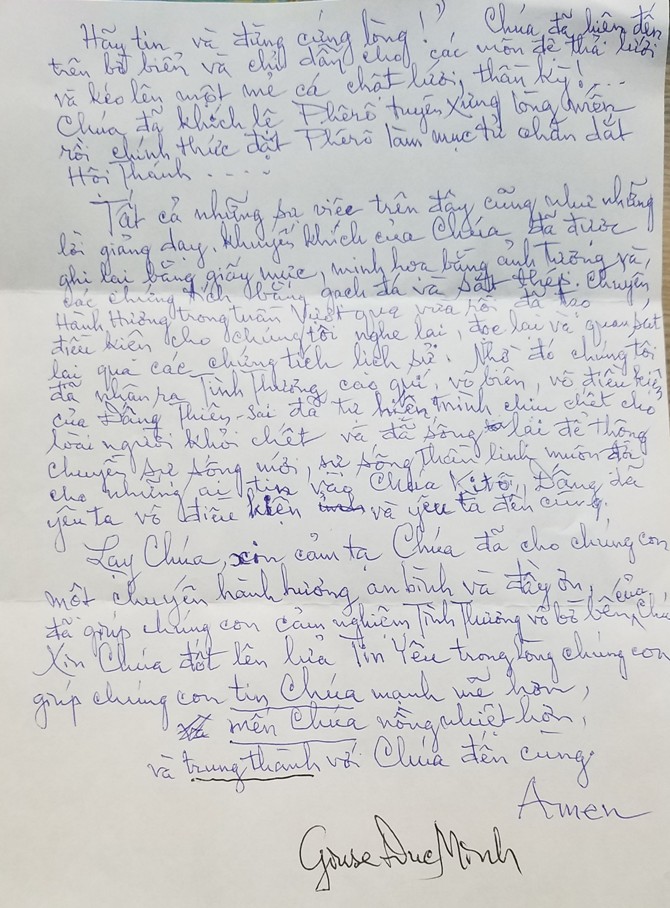 Hãy tin và đừng cứng lòng!") Chúa đã hiện đến
trên bờ biển và chỉ dẫn cho các môn đệ thả lưới
và kéo lên một mẻ cá chật lưới, thần kỳ!...
Chúa đã khích lệ Phêrô tuyên xưng lòng mến
rồi chính thức đặt Phêrô làm mục tử chăn dắt
Hội Thánh.....
Tất cả những sự việc trên đây cũng như những
lời giảng dạy, khuyến khích của Chúa đã được
ghi lại bằng giấy mực, minh họa bằng ảnh tượng và
các chứng tích bằng gạch đá và sắt thép. Chuyến
Hành Hương trong tuần Vượt qua vừa rồi đã tạo
điều kiện cho chúng tôi nghe lại, đọc lại và quan sát
lại qua các chứng tích lịch sử. Nhờ đó chúng tôi
đã nhận ra Tình Thương cao quí, vô biên, vô điều kiện
của Đấng Thiên-Sai đã tự hiến mình chịu chết cho
loài người khỏi chết và đã sống lại để thông
chuyển sự sống mới, sự sống thần linh muôn đời
cho những ai tin vào Chúa Kitô, Đấng đã
yêu ta vô điều kiện và yêu ta đến cùng.
Lạy Chúa, xin cảm tạ Chúa đã cho chúng con
một chuyến hành hương an bình và đầy ơn,
đã giúp chúng con cảm nghiệm Tình Thương vô bờ bến của Chúa
Xin Chúa đốt lên lửa Tin Yêu trong lòng chúng con
giúp chúng con tin Chúa mạnh mẽ hơn,
mến Chúa nồng nhiệt hơn,
và trung thành với Chúa đến cùng
Amen
Giuse Đức Minh